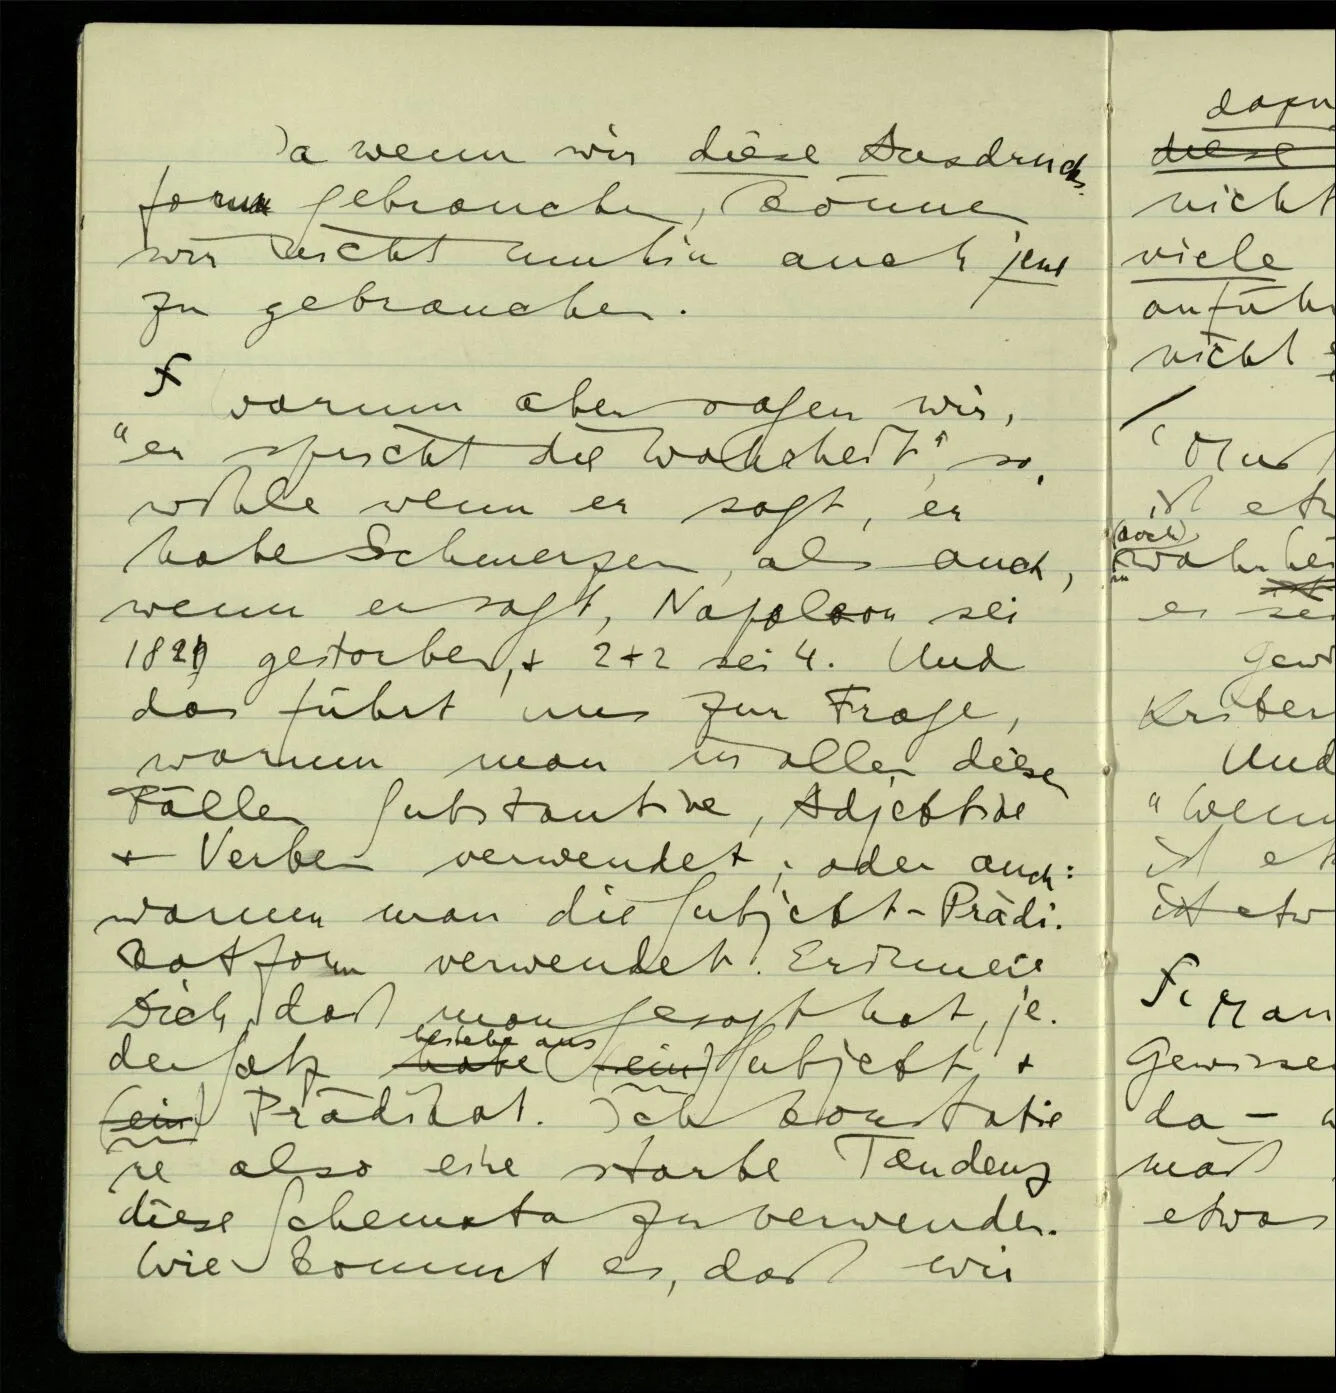 Ja wenn wir diese Ausdrucks-
form gebrauchen, können
wir nicht umhin auch jene
zu gebrauchen.
F Warum aber sagen wir,
“er spricht die Wahrheit”, so-
wohl wenn er sagt, er
habe Schmerzen, als auch,
wenn er sagt, Napoleon sei
gestorben, + 2+2 sei 4. Und
das führt uns zur Frage,
warum man in allen diesen
Fällen Substantive, Adjektive
+ Verben verwendet; oder auch:
warum man die Subjekt-Prädi-
katform verwendet. Erinnere
Dich daß man gesagt hat, je-
bestehe aus
der Satz habe (ein) Subjekt +
(ein) Prädikat. Ich konstatie
re also eine starke Tendenz
diese Schemata zu verwenden.
Wie kommt es, daß wir
diese
nicht
viele
anführ
nicht
“
ist etw
(doch)
wahr
er sei
Gewi
Kriter
Und
“Wenn
ist et
ist etw
F. Man
Gewisse
da –
muß
etwas